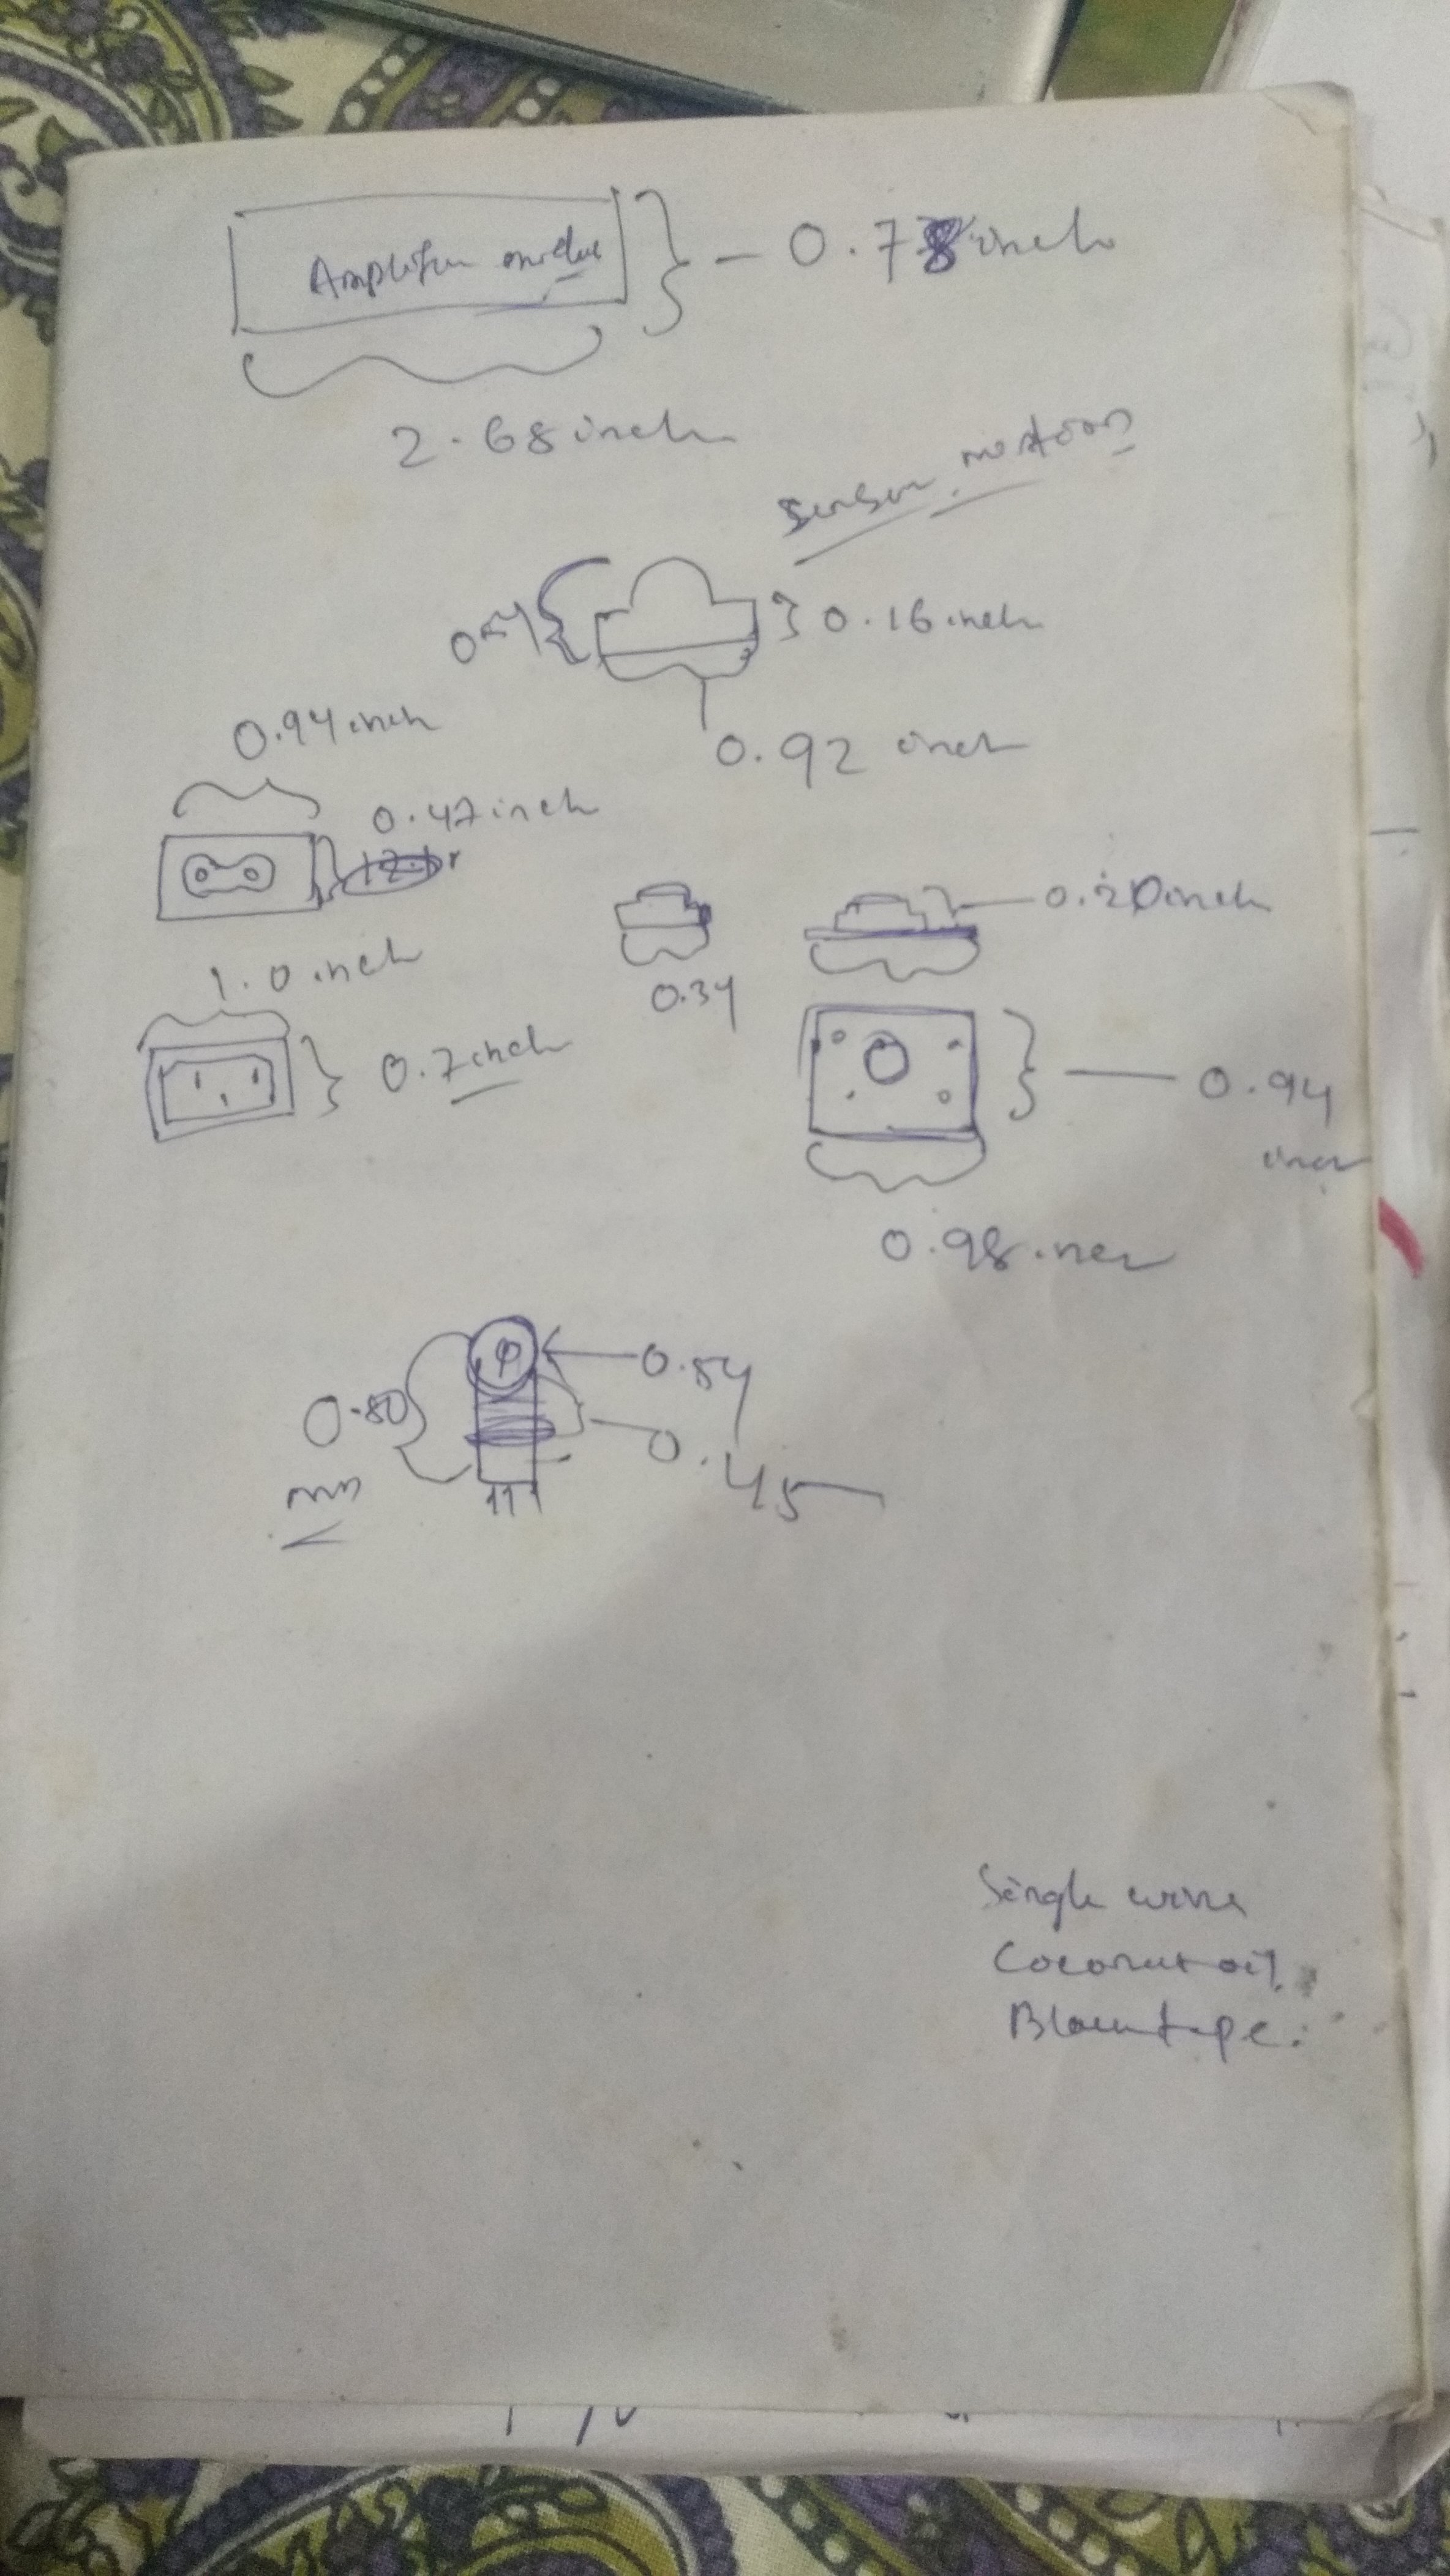 Amplifier module
0.78 inch
2.68 inch
Sensor motion
0.16 inch
0.92 inch
0.94 inch
0.47 inch
0.20 inch
0.34
1.0 inch
0.7 inch
0.94
inch
0.98 inch
0.54
0.80
0.45
mm
Single wire
Coconut oil